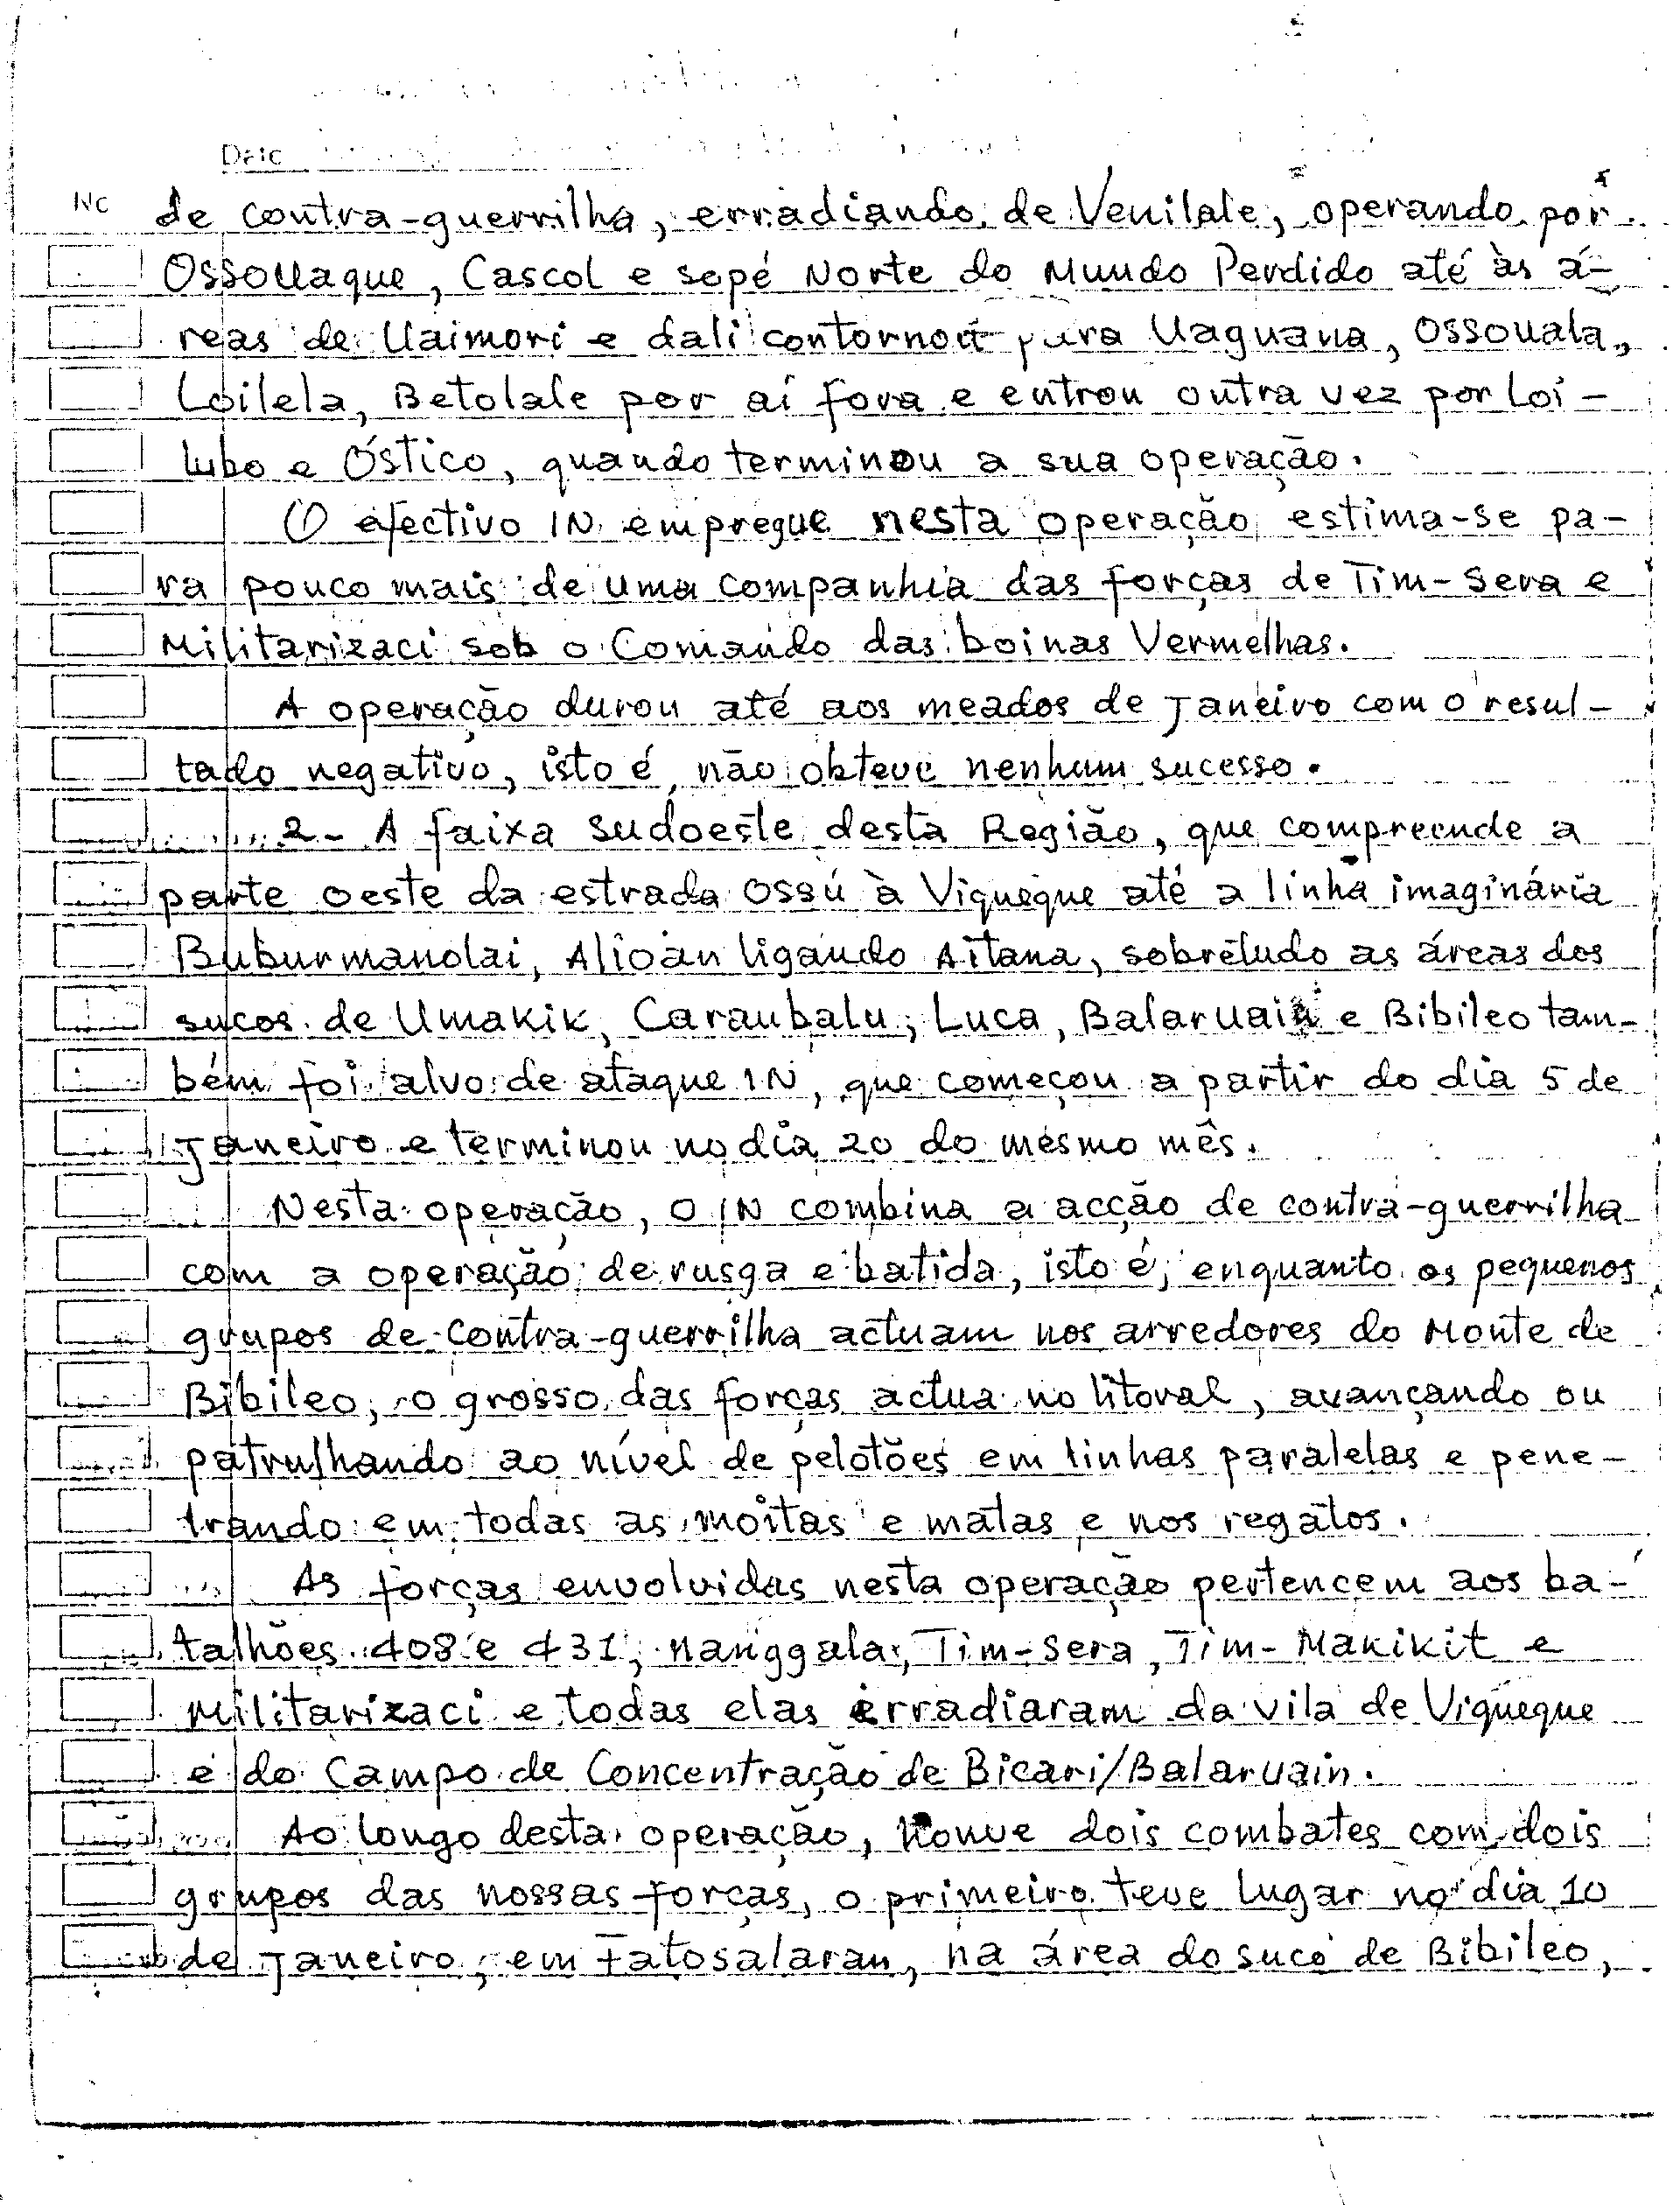 Date
No de contra-guerrilha, erradiando de Venilale, operando por
Ossouaque, Cascol e sopé Norte do Mundo Perdido até às á-
reas de Uaimori e dali contornou para Uaguana, Ossouala,
Loilela, Betolale por aí fora e entrou outra vez por Loi-
lubo e Óstico, quando terminou a sua operação.
O efectivo IN empregue nesta operação estima-se pa-
ra pouco mais de uma companhia das forças de Tim-Sera e
Militarizaci sob o Comando das boinas Vermelhas.
A operação durou até aos meados de Janeiro com o resul-
tado negativo, isto é, não obteve nenhum sucesso.
2- A faixa sudoeste desta Região, que compreende a
parte oeste da estrada Ossú à Viqueque até a linha imaginária
Buburmanolai, Alioan ligando Aitana, sobretudo as áreas dos
sucos de Umakik, Caraubalu, Luca, Balaruain e Bibileo tam-
bém foi alvo de ataque IN, que começou a partir do dia 5 de
Janeiro e terminou no dia 20 do mesmo mês.
Nesta operação, o IN combina a acção de contra-guerrilha
com a operação de rusga e batida, isto é, enquanto os pequenos
grupos de contra-guerrilha actuam nos arredores do Monte de
Bibileo, o grosso das forças actua no litoral, avançando ou
patrulhando ao nível de pelotões em linhas paralelas e pene-
trando em todas as moitas e matas e nos regatos.
As forças envolvidas nesta operação pertencem aos ba-
talhões 408 e 431, Nanggala, Tim-Sera, Tim-Makikit e
Militarizaci e todas elas erradiaram da vila de Viqueque
e do Campo de Concentração de Bicari/Balaruain.
Ao longo desta operação, houve dois combates com dois
grupos das nossas forças, o primeiro teve lugar no dia 10
de Janeiro, em Fatosalaran, na área do suco de Bibileo,